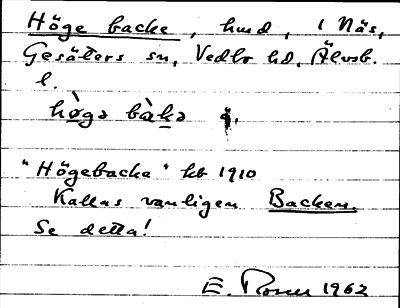 Höge backe, hmd, i Näs,
Gesäters sn, Vedbo hd, Älvsb.
l.
hø̀gə bàkə
"Högebacka" kb 1910
Kallas vanligen Backen.
Se detta!
E. Rosell 1962